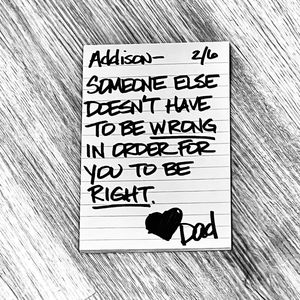 Addison- 2/6
SOMEONE ELSE
DOESN'T HAVE
TO BE WRONG
IN ORDER FOR
YOU TO BE
RIGHT.
Dad